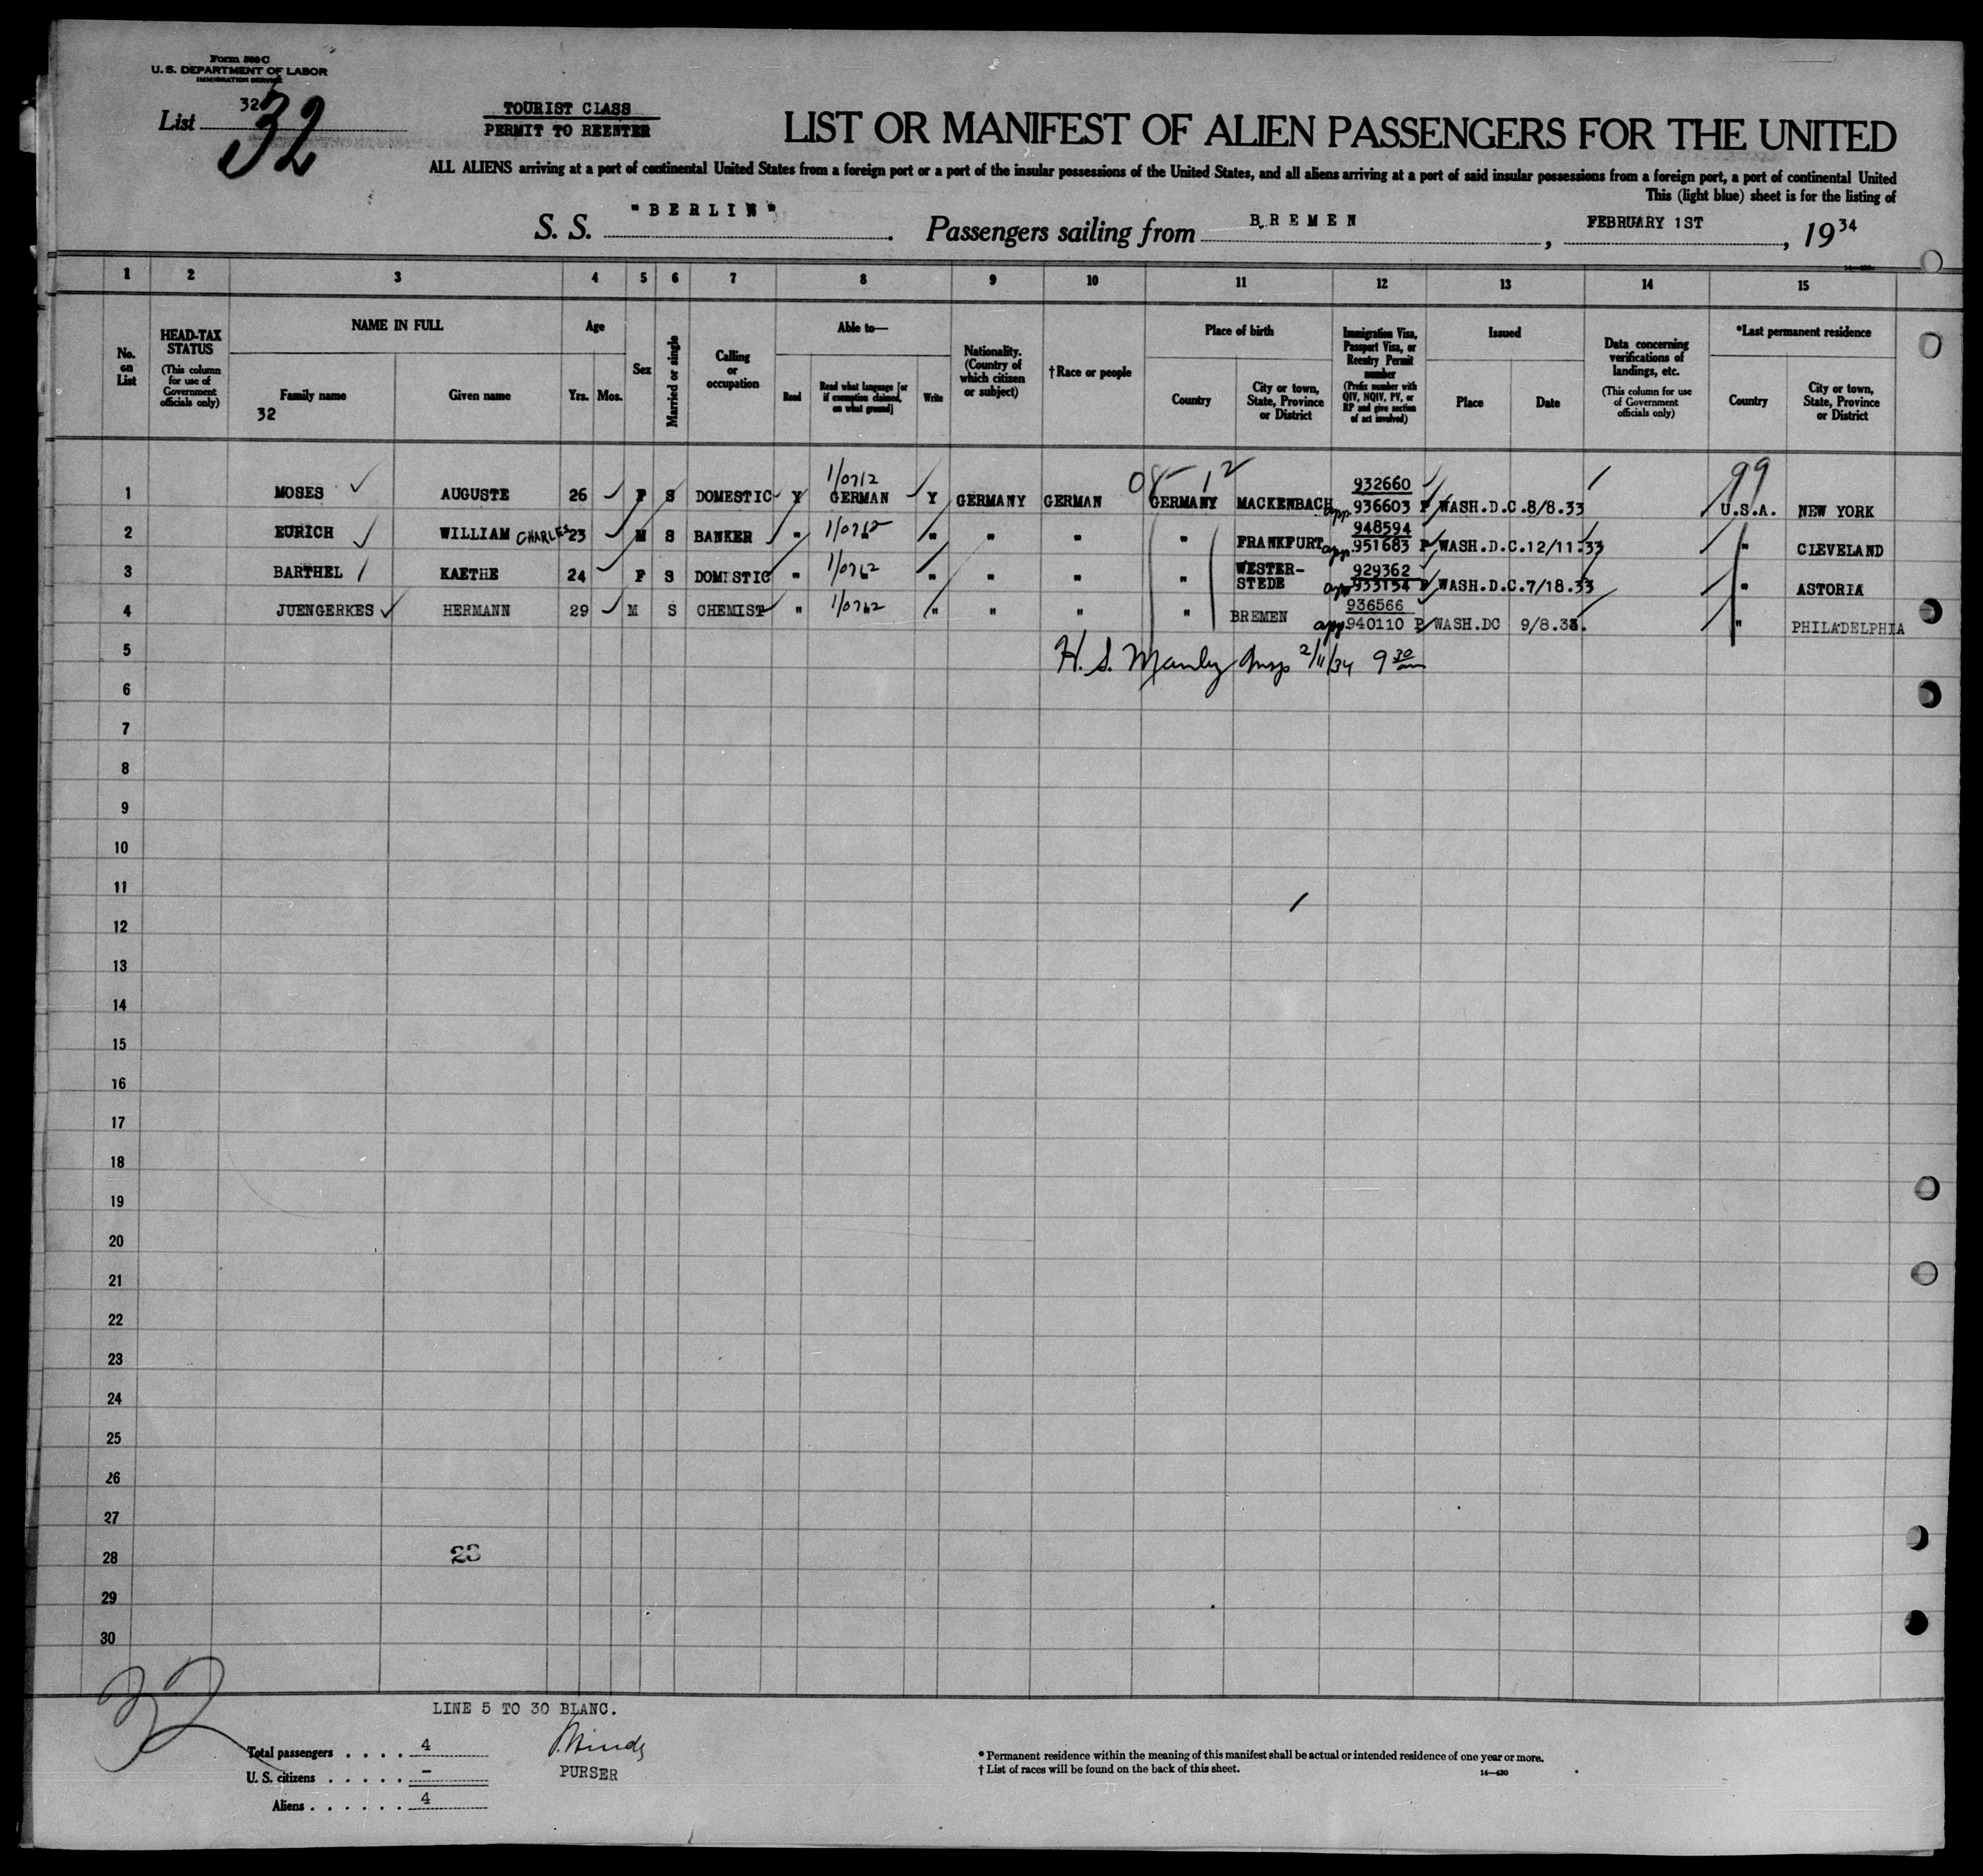 Form 500 C
U. S. DEPARTMENT OF LABOR
IMMIGRATION SERVICE
List 32
32
TOURIST CLASS
PERMIT TO REENTER
LIST OR MANIFEST OF ALIEN PASSENGERS FOR THE UNITED
ALL ALIENS arriving at a port of continental United States from a foreign port or a port of the insular possessions of the United States, and all aliens arriving at a port of said insular possessions from a foreign port, a port of continental United
This (light blue) sheet is for the listing of
S. S. "BERLIN". Passengers sailing from BREMEN, FEBRUARY 1ST, 1934
1 2 3 4 5 6 7 8 9 10 11 12 13 14 15
No. on List
HEAD-TAX STATUS
(This column for use of Government officials only)
NAME IN FULL
Family name
Given name
32
Age
Yrs. Mos.
Sex
Married or single
Calling or occupation
Able to—
Read
Read what language [or if exemption claimed, on what ground]
Write
Nationality. (Country of which citizen or subject)
†Race or people
Place of birth
Country
City or town, State, Province or District
Immigration Visa, Passport Visa, or Reentry Permit number
(Prefix number with QIV, NQIV, PV, or RP and give section of act involved)
Issued
Place
Date
Data concerning verifications of landings, etc.
(This column for use of Government officials only)
*Last permanent residence
Country
City or town, State, Province or District
1/0712 08- 12 932660 99
1 MOSES AUGUSTE 26 F S DOMESTIC Y GERMAN Y GERMANY GERMAN GERMANY MACKENBACH app. 936603 P WASH.D.C. 8/8.33 U.S.A. NEW YORK
948594
2 EURICH WILLIAM CHARLES 23 M S BANKER " 1/0762 " " " " FRANKFURT app. 951683 P WASH.D.C. 12/11.33 " CLEVELAND
929362
3 BARTHEL KAETHE 24 F S DOMISTIC " 1/0762 " " " " WESTER-STEDE app 933154 P WASH.D.C. 7/18.33 " ASTORIA
936566
4 JUENGERKES HERMANN 29 M S CHEMIST " 1/0762 " " " " BREMEN app. 940110 P WASH.DC 9/8.33. " PHILADELPHIA
5 H. S. Manly Insp 2/11/34 9 30 am
6
7
8
9
10
11
12
13
14
15
16
17
18
19
20
21
22
23
24
25
26
27
28 23
29
30
32
LINE 5 TO 30 BLANC.
Total passengers . . . . 4
U. S. citizens . . . . . –
PURSER
Aliens . . . . . . 4
* Permanent residence within the meaning of this manifest shall be actual or intended residence of one year or more.
† List of races will be found on the back of this sheet.
14—430